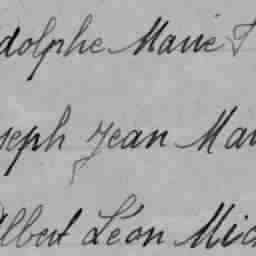 dolphe Marie F
seph Jean Mar
Albert Léon Mic